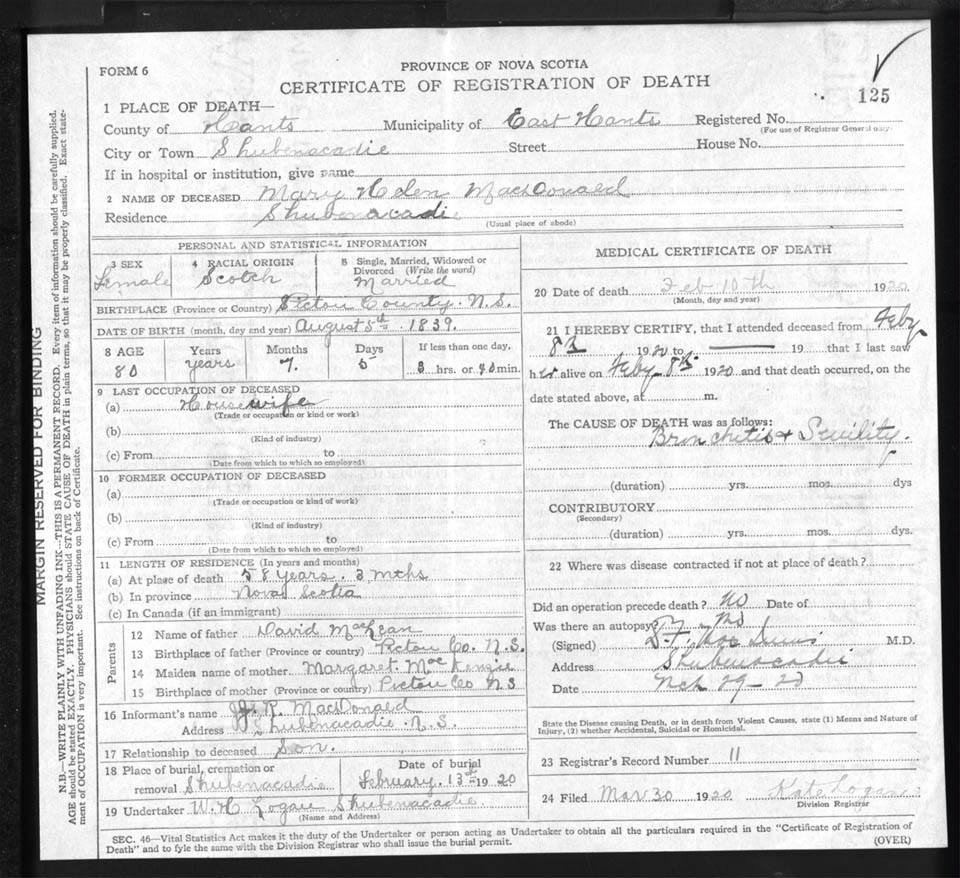 FORM 6
PROVINCE OF NOVA SCOTIA
CERTIFICATE OF REGISTRATION OF DEATH
125
1 PLACE OF DEATH—
County of Hants Municipality of East Hants Registered No.
(For use of Registrar General only)
City or Town Shubenacadie Street House No.
If in hospital or institution, give name
2 NAME OF DECEASED Mary Helen MacDonald
Residence Shubenacadie
(Usual place of abode)
PERSONAL AND STATISTICAL INFORMATION
3 SEX 4 RACIAL ORIGIN 5 Single, Married, Widowed or Divorced (Write the word)
Female Scotch Married
BIRTHPLACE (Province or Country) Pictou County. N.S.
DATE OF BIRTH (month, day and year) August 5th 1839.
8 AGE Years Months Days If less than one day,
80 years 7. 5 3 hrs. or 40 min.
9 LAST OCCUPATION OF DECEASED
(a) Housewife
(Trade or occupation or kind or work)
(b)
(Kind of industry)
(c) From to
(Date from which to which so employed)
10 FORMER OCCUPATION OF DECEASED
(a)
(Trade or occupation or kind of work)
(b)
(Kind of industry)
(c) From to
(Date from which to which so employed)
11 LENGTH OF RESIDENCE (In years and months)
(a) At place of death 58 years. 3 mths
(b) In province Nova Scotia
(c) In Canada (if an immigrant)
Parents
12 Name of father David MacLean
13 Birthplace of father (Province or country) Pictou Co. N.S.
14 Maiden name of mother Margaret MacKenzie
15 Birthplace of mother (Province or country) Pictou Co NS
16 Informant's name R. MacDonald
Address Shubenacadie N.S.
17 Relationship to deceased Son.
18 Place of burial, cremation or removal Shubenacadie Date of burial February. 13th 1920
19 Undertaker W. H Logan Shubenacadie
(Name and Address)
MEDICAL CERTIFICATE OF DEATH
20 Date of death Feb 10th 1920
(Month, day and year)
21 I HEREBY CERTIFY, that I attended deceased from Feby
8th 1920 to — 19 that I last saw
her alive on Feby 8th 1920 and that death occurred, on the
date stated above, at m.
The CAUSE OF DEATH was as follows:
Bronchitis & Senility.
(duration) yrs. mos. dys
CONTRIBUTORY
(Secondary)
(duration) yrs. mos. dys.
22 Where was disease contracted if not at place of death?
Did an operation precede death? No Date of
Was there an autopsy? No
(Signed) M.D.
Address Shubenacadie
Date Mch 29 - 20
State the Disease causing Death, or in death from Violent Causes, state (1) Means and Nature of
Injury, (2) whether Accidental, Suicidal or Homicidal.
23 Registrar's Record Number 11
24 Filed Mar 30 1920 Kate Logan
Division Registrar
SEC. 46—Vital Statistics Act makes it the duty of the Undertaker or person acting as Undertaker to obtain all the particulars required in the "Certificate of Registration of
Death" and to fyle the same with the Division Registrar who shall issue the burial permit.
(OVER)
MARGIN RESERVED FOR BINDING
N.B.—WRITE PLAINLY WITH UNFADING INK—THIS IS A PERMANENT RECORD. Every item of information should be carefully supplied.
AGE should be stated EXACTLY. PHYSICIANS should STATE CAUSE OF DEATH in plain terms, so that it may be properly classified. Exact state-
ment of OCCUPATION is very important. See instructions on back of Certificate.